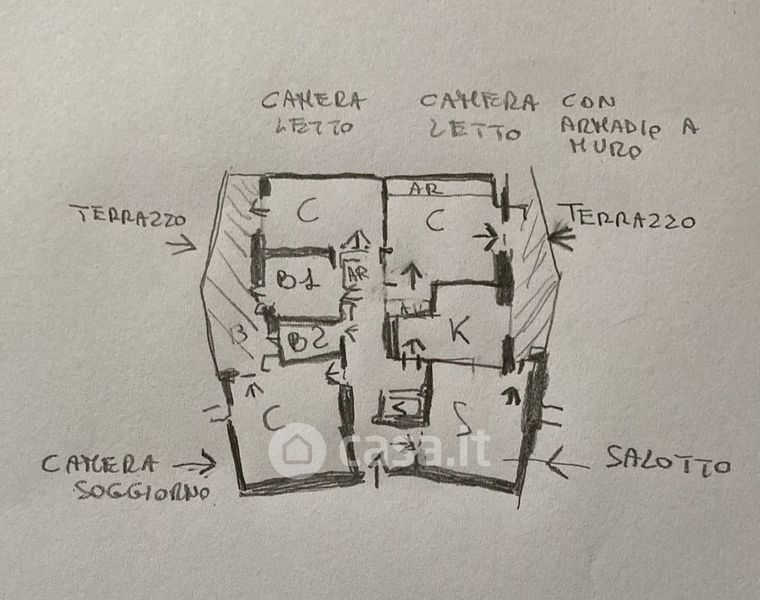 CAMERA
LETTO
CAMERA CON
LETTO ARMADIO A
MURO
TERRAZZO
TERRAZZO
AR
C
C
AR
B1
B
B2
K
C
S
S
casa.it
CAMERA
SOGGIORNO
SALOTTO